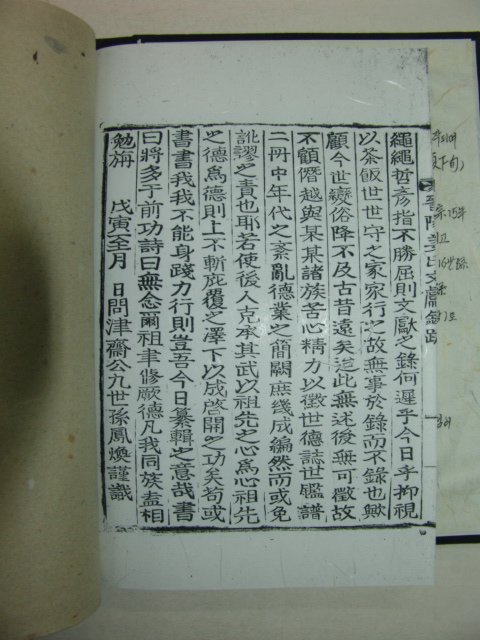 繩繩哲彦指不勝屈則文獻之錄何遲乎今日乎抑視
以茶飯世世守之家家行之故無事於錄而不錄也歟
顧今世變俗降不及古昔遠矣這此無述後無可徵故
不顧僭越與某某諸族苦心精力以徵世德誌世鑑譜
二冊中年代之紊亂德業之簡闕庶幾成編然而或免
訛謬之責也耶若使後人克承其武以祖先之心爲心祖先
之德爲德則上不斬庇覆之澤下以成啓開之功矣苟或
書書我我不能身踐力行則豈吾今日纂輯之意哉書
曰將多于前功詩曰無念爾祖聿修厥德凡我同族盍相
勉旃
戊寅仝月 日問津齋公九世孫鳳煥謹識